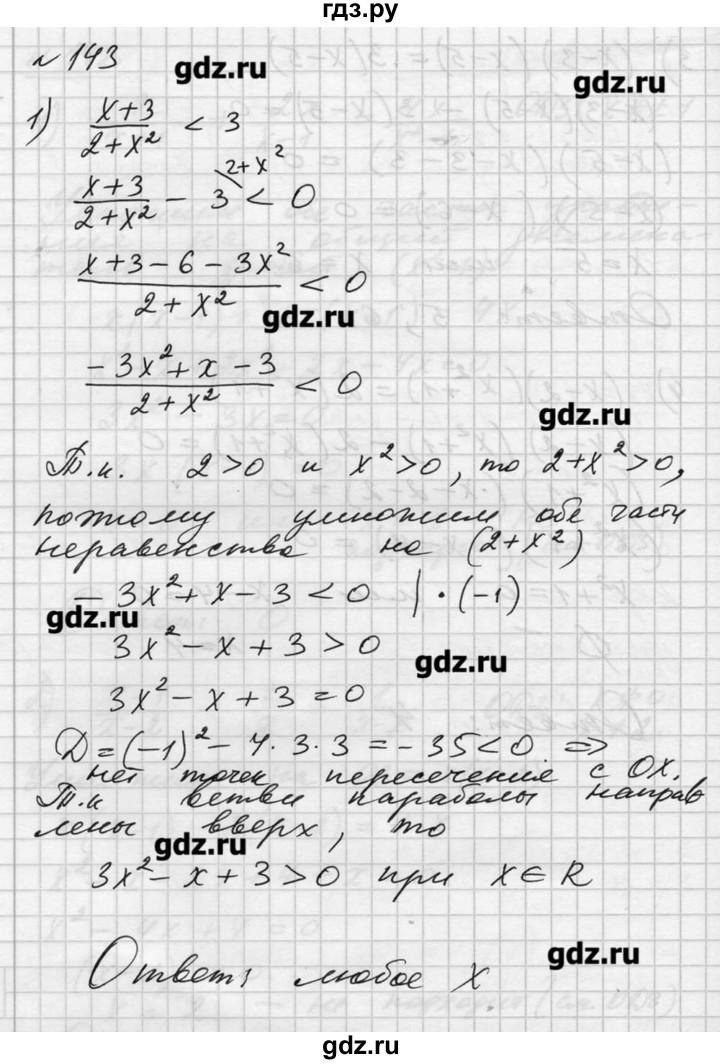 гдз.ру
№ 143
gdz.ru
gdz.ru
1) (x+3)/(2+x²) < 3
(x+3)/(2+x²) - 3 < 0
2+x²
(x+3-6-3x²)/(2+x²) < 0
gdz.ru
(-3x²+x-3)/(2+x²) < 0
gdz.ru
Т.к. 2>0 и x²>0, то 2+x²>0,
поэтому умножим обе части
неравенства на (2+x²)
-3x²+x-3<0 |·(-1)
gdz.ru
3x²-x+3>0
gdz.ru
3x²-x+3=0
D=(-1)²-4·3·3=-35<0 ⇒
нет точек пересечения с OX.
Т.к ветви параболы направ
лены вверх, то
gdz.ru
3x²-x+3>0 при x∈R
gdz.ru
Ответ: любое x
gdz.ru